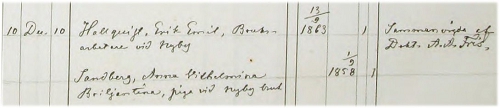 10 Dec. 10 Hallquist, Erik Emil, Bruks- 13/9 1863 1 Sammanvigda af
arbetare vid Nyby Dokt. A. A. Friis.
Sandberg, Anna Vilhelmina 1/9 1858 1
Briljantina, piga vid Nyby bruk